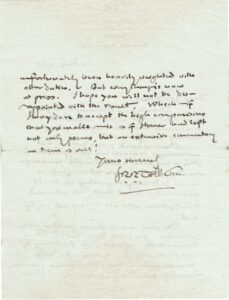 unfortunately been heavily weighted with
other duties. But everything is now
at press. I hope you will not be dis-
appointed with the result. Which if
I may dare to accept the high comparisons
that you make – is as if Homer had left
not only poems, but an extensive commentary
on them as well!
Yours sincerely
JRR Tolkien